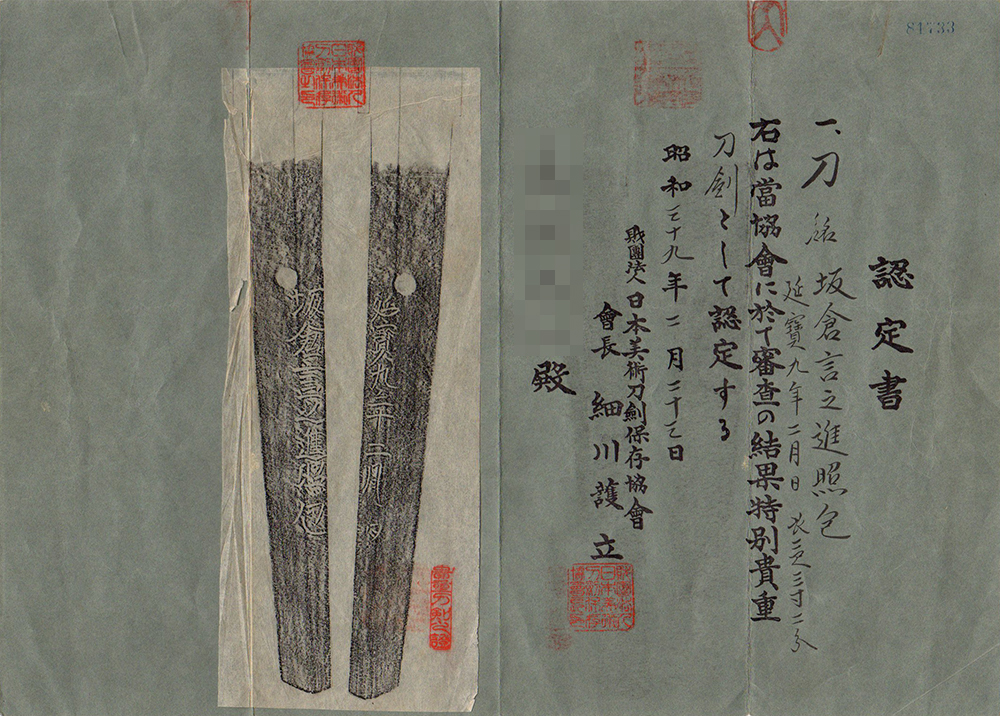 84733
認定書
一、刀 銘 坂倉言之進照包
延寶九年二月日 長二尺三寸二分
右は當協會に於て審査の結果特別貴重
刀劍として認定する
昭和三十九年二月二十三日
財團法人日本美術刀劍保存協會
會長 細川護立
殿
延寶九年二月日
坂倉言之進照包